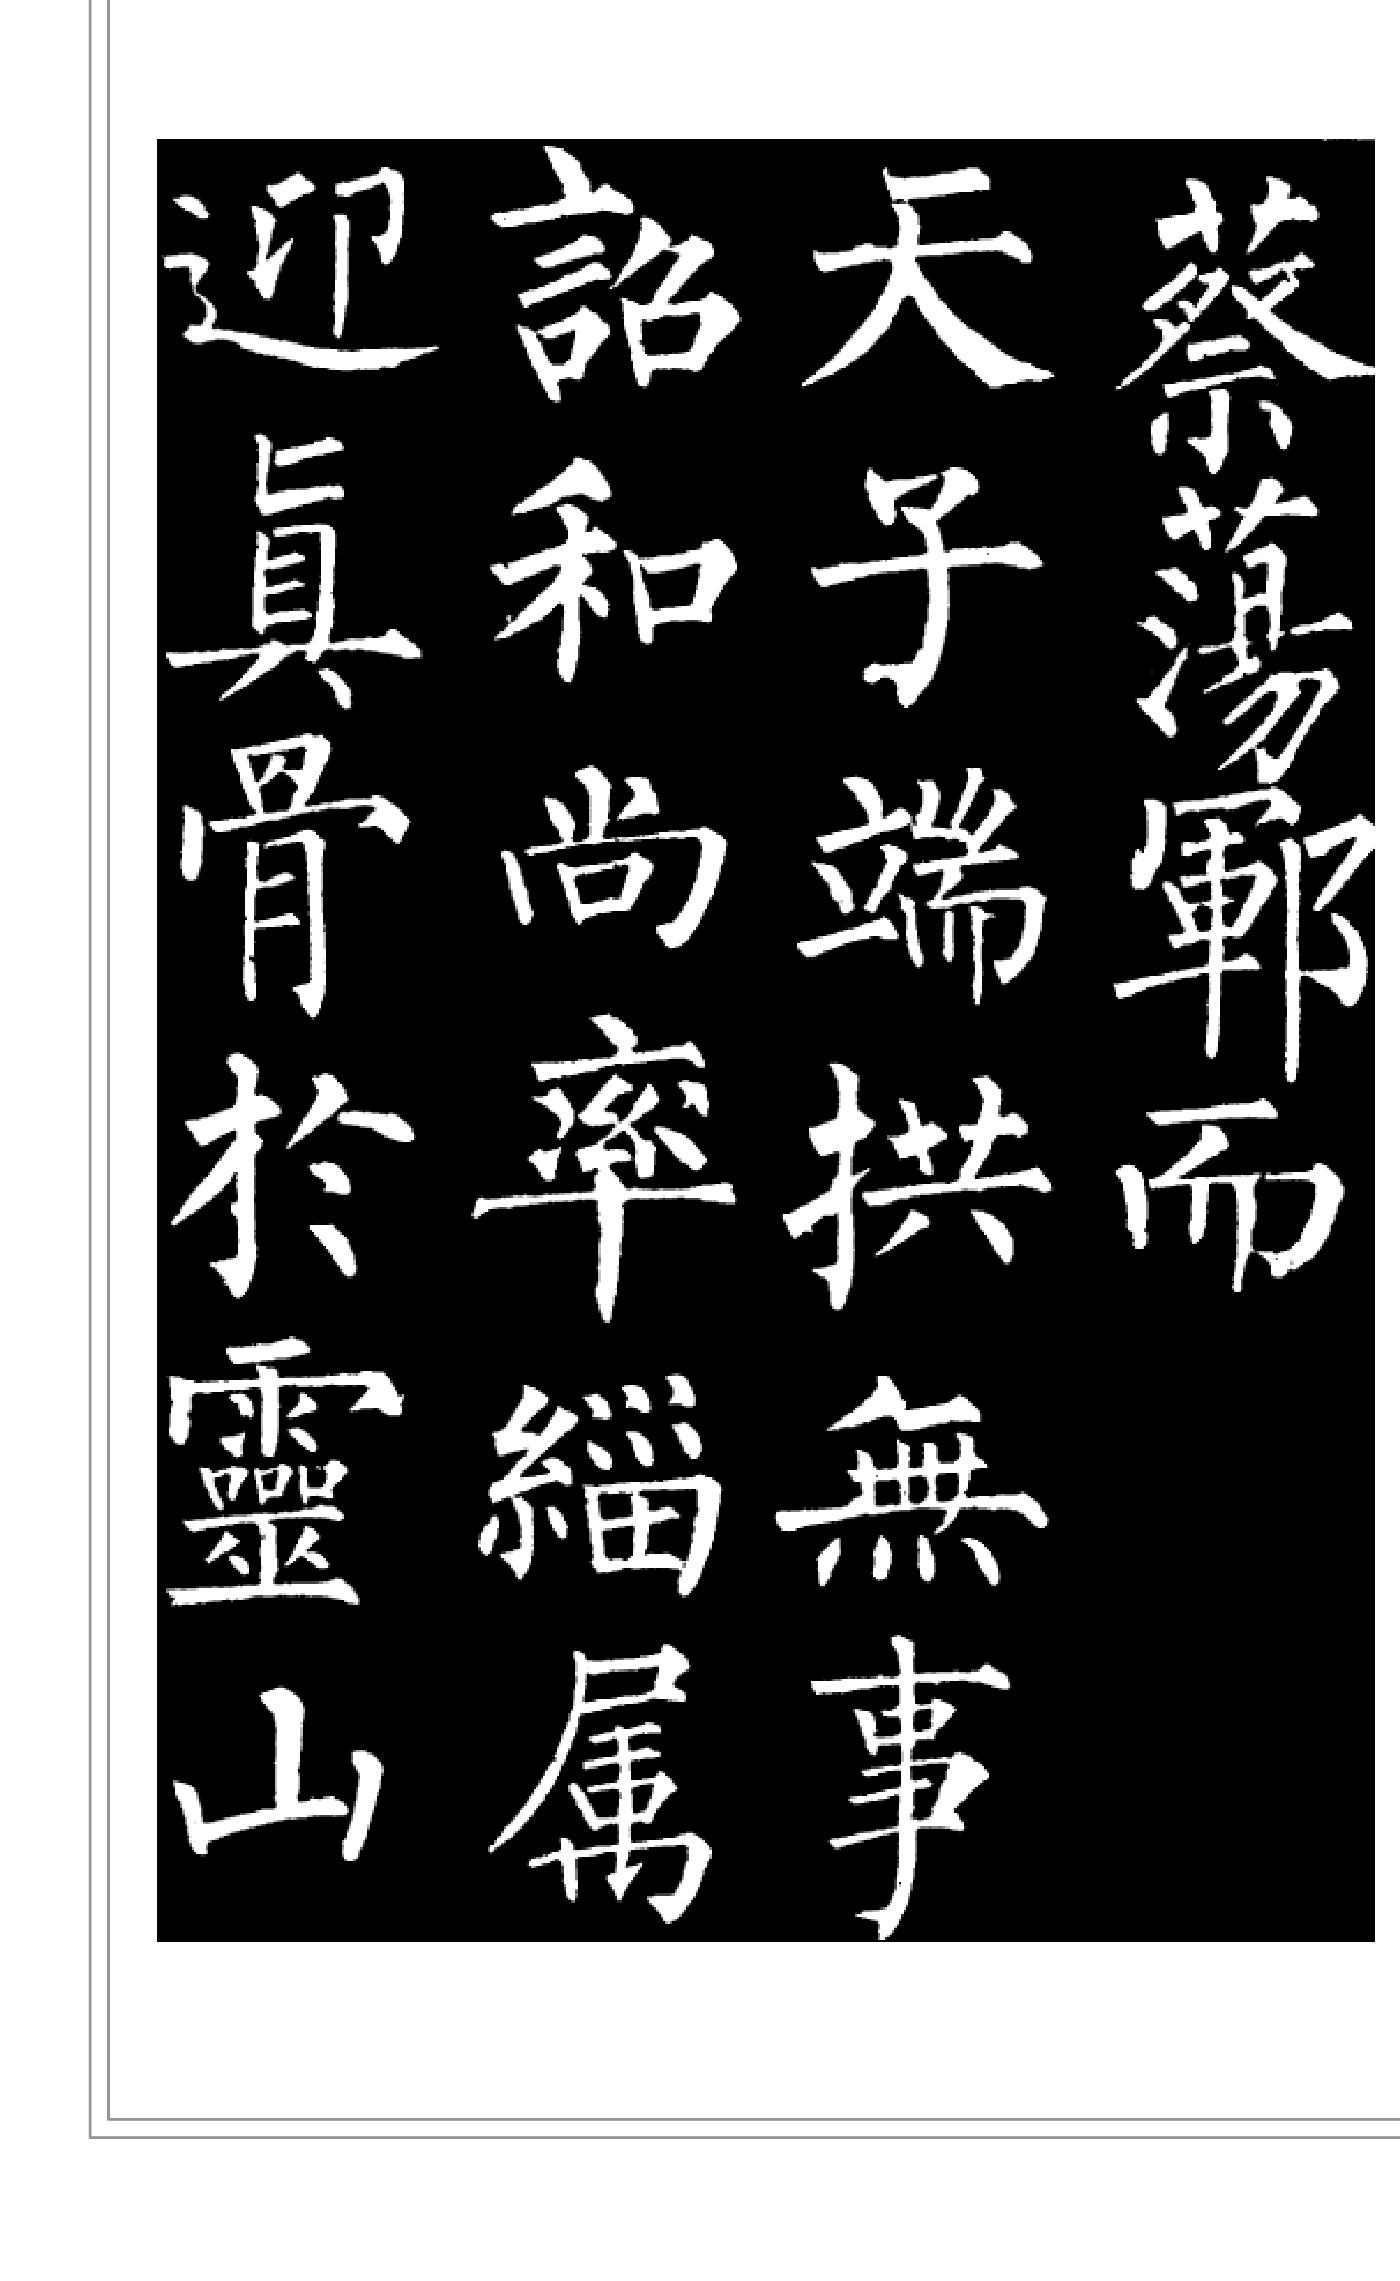 蔡蕩鄆而
天子端拱無事
詔和尚率緇属
迎真骨於靈山